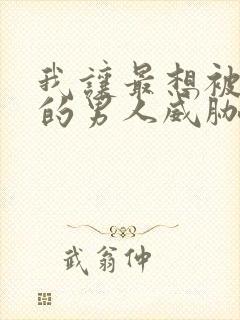 我让最想被
的男人威胁
武翁仲